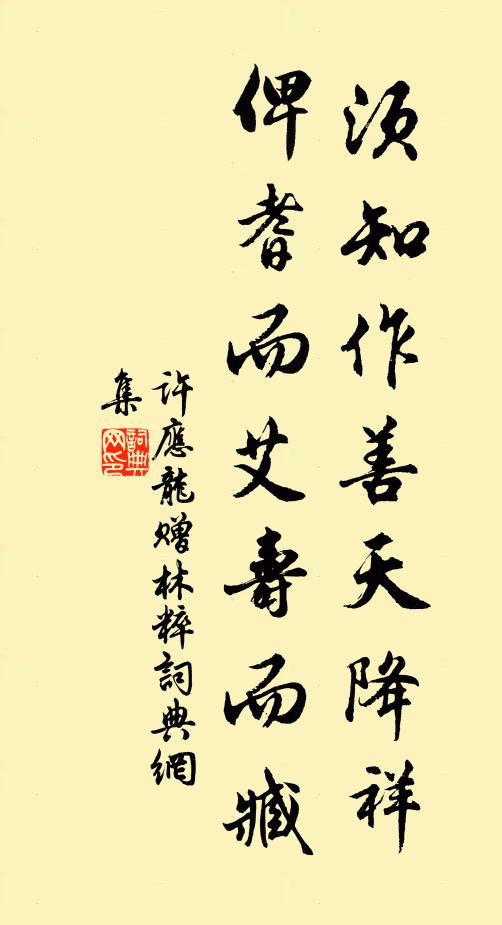 须知作善天降祥
俾耆而艾壽而臧
许應龍赠林粹詞典網
集
詞典
网印